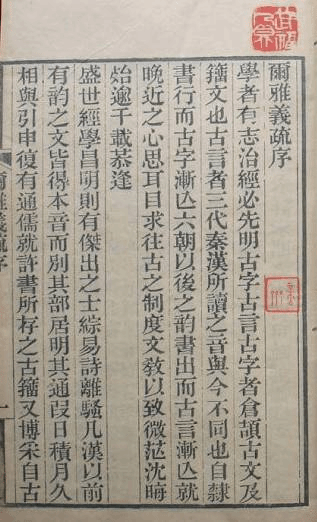 爾雅義疏序
學者有志治經必先明古字古言古字者倉頡古文及
籀文也古言者三代秦漢所讀之音與今不同也自隸
書行而古字漸亾六朝以後之韵書出而古言漸亾就
晚近之心思耳目求往古之制度文敎以致微茫沈晦
殆逾千載恭逢
盛世經學昌明則有傑出之士綜易詩離騷凡漢以前
有韵之文皆得本音而別其部居明其通叚日積月久
相與引申復有通儒就許書所存之古籀又博采自古
爾雅義疏序
一